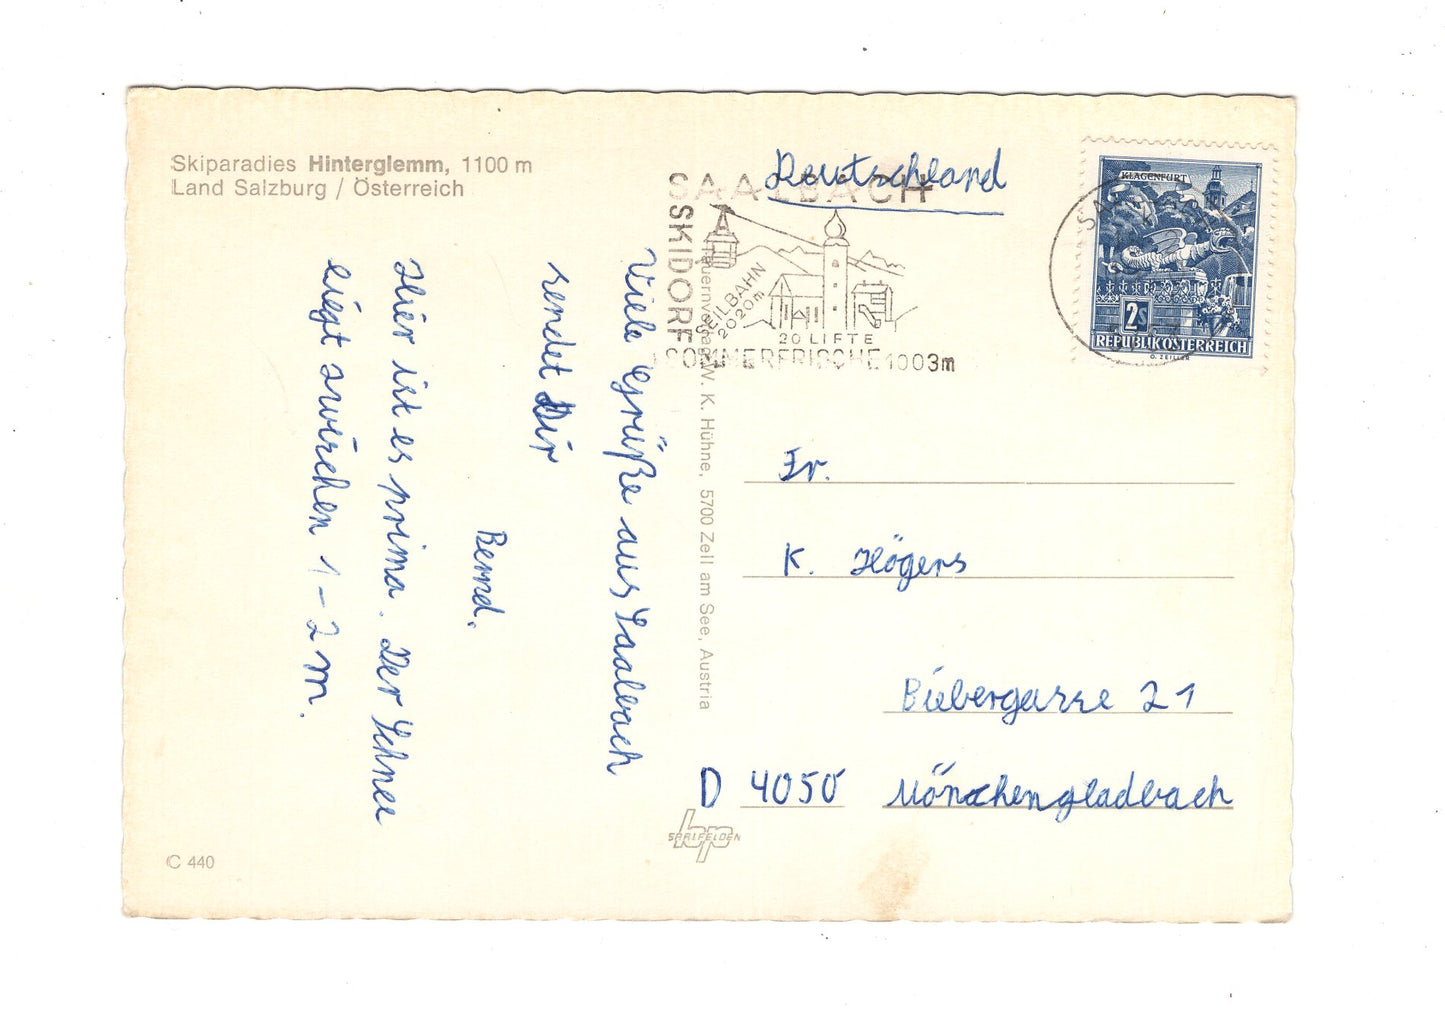 Skiparadies Hinterglemm, 1100 m
Land Salzburg / Österreich
Viele Grüße aus Saalbach
sendet Dir
Bernd.
Hier ist es prima. Der Schnee
liegt zwischen 1-2 m.
C 440
Tauernverlag W. K. Hühne, 5700 Zell am See, Austria
SAALFELDEN
SAALBACH
SKIDORF
SEILBAHN
2020m
20 LIFTE
SOMMERFRISCHE 1003m
Deutschland
KLAGENFURT
2S
REPUBLIK ÖSTERREICH
Fr.
K. Högers
Biebergasse 21
D 4050 Mönchengladbach